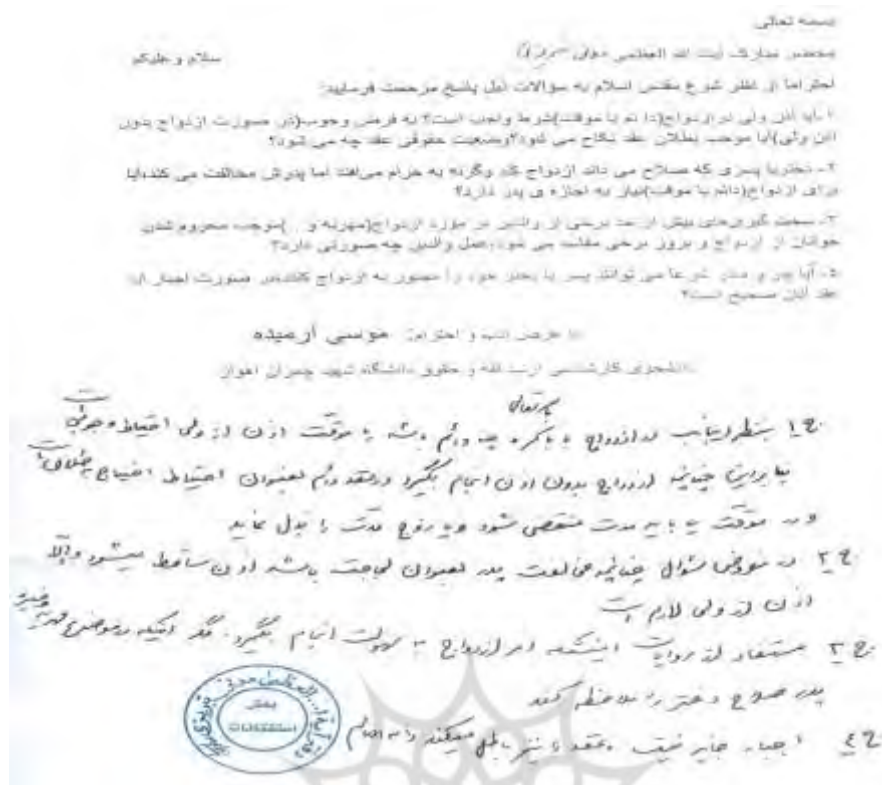 بسمه تعالی
محضر مبارک آیت الله العظمی سلام و علیکم
احتراما از نظر شرع مقدس اسلام به سوالات ذیل پاسخ مرحمت فرمایید:
۱-آیا اذن ولی در ازدواج(دائم یا موقت)شرط واجب است؟ به فرض وجوب(در صورت ازدواج بدون
اذن ولی)آیا موجب بطلان عقد نکاح می شود؟وضعیت حقوقی عقد چه می شود؟
۲- دختریا پسری که صلاح می داند ازدواج کند وگرنه به حرام می‌افتد اما پدرش مخالفت می کند،آیا
برای ازدواج(دائم یا موقت)نیاز به اجازه ی پدر دارد؟
۳- سخت گیری‌های بیش از حد برخی از والدین در مورد ازدواج(مهریه و ..)موجب محروم شدن
جوانان از ازدواج و بروز برخی مفاسد می شود،عمل والدین چه صورتی دارد؟
۵- آیا پدر و مادر شرعا می توانند پسر یا دختر خود را مجبور به ازدواج کنند،در صورت اجبار آیا
عقد آنان صحیح است؟
با عرض ادب و احترام: موسی آرمیده
دانشجوی کارشناسی ارشد فقه و حقوق دانشگاه شهید چمران اهواز
باسمه تعالی
ج ۱ بنظر اینجانب در ازدواج با باکره چه دائم باشد یا موقت اذن از ولی احتیاط وجوبی است
بنابراین چنانچه ازدواج بدون اذن انجام بگیرد در عقد دائم بعنوان احتیاط احتیاج بطلاق است
و در موقت یا باید مدت منقضی شود و یا زوج مدت را بذل نماید
ج ۲ در مفروض سؤال چنانچه مخالفت پدر بعنوان لجاجت باشد اذن ساقط میشود والا
اذن از ولی لازم است
ج ۳ مستفاد از روایات اینستکه امر ازدواج به سهولت انجام بگیرد. مگر اینکه در موضوع مهریه و غیره
پدر صلاح دختر را ملاحظه کند
ج ٤ اجبار جایز نیست و عقد را نیز باطل میکند والله العالم
دفتر آیة الله العظمی تبریزی
بخش
استفتائات